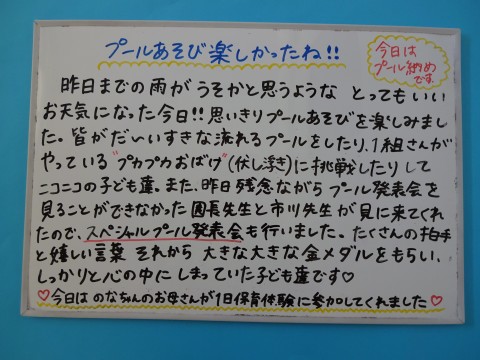 プールあそび楽しかったね!!
今日は
プール納め
です
昨日までの雨が うそかと思うような とってもいい
お天気になった今日!! 思いきりプールあそびを楽しみまし
た。皆がだ〜いすきな流れるプールをしたり、1組さんが
やっている"プカプカおばけ"(伏し浮き)に挑戦したりして
ニコニコの子ども達。また、昨日残念ながらプール発表会を
見ることができなかった園長先生と市川先生が見に来てくれ
たので、スペシャルプール発表会も行いました。たくさんの拍手
と嬉しい言葉 それから 大きな大きな金メダルをもらい、
しっかりと心の中にしまっていた子ども達です♡
♡今日は のなちゃんのお母さんが1日保育体験に参加してくれました♡